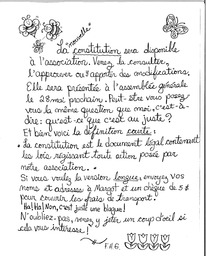 La "nouvelle"
La constitution sera disponible
à l'association. Venez la consulter,
l'approuver ou apporter des modifications.
Elle sera présentée à l'assemblée générale
le 28 mai prochain. Peut-être vous posez-
vous la même question que moi, c'est-à-
dire: qu'est-ce que c'est au juste?
Et bien voici la définition courte:
La constitution est le document légal contenant
les lois régissant toute action posée par
notre association.
Si vous voulez la version longue, envoyez vos
noms et adresses à Margot et un chèque de 5$
pour couvrir les frais de transport!
"Ha! Ha! Non, c'est juste une blague!
N'oubliez pas, venez y jeter un coup d'oeil si
cela vous intéresse!